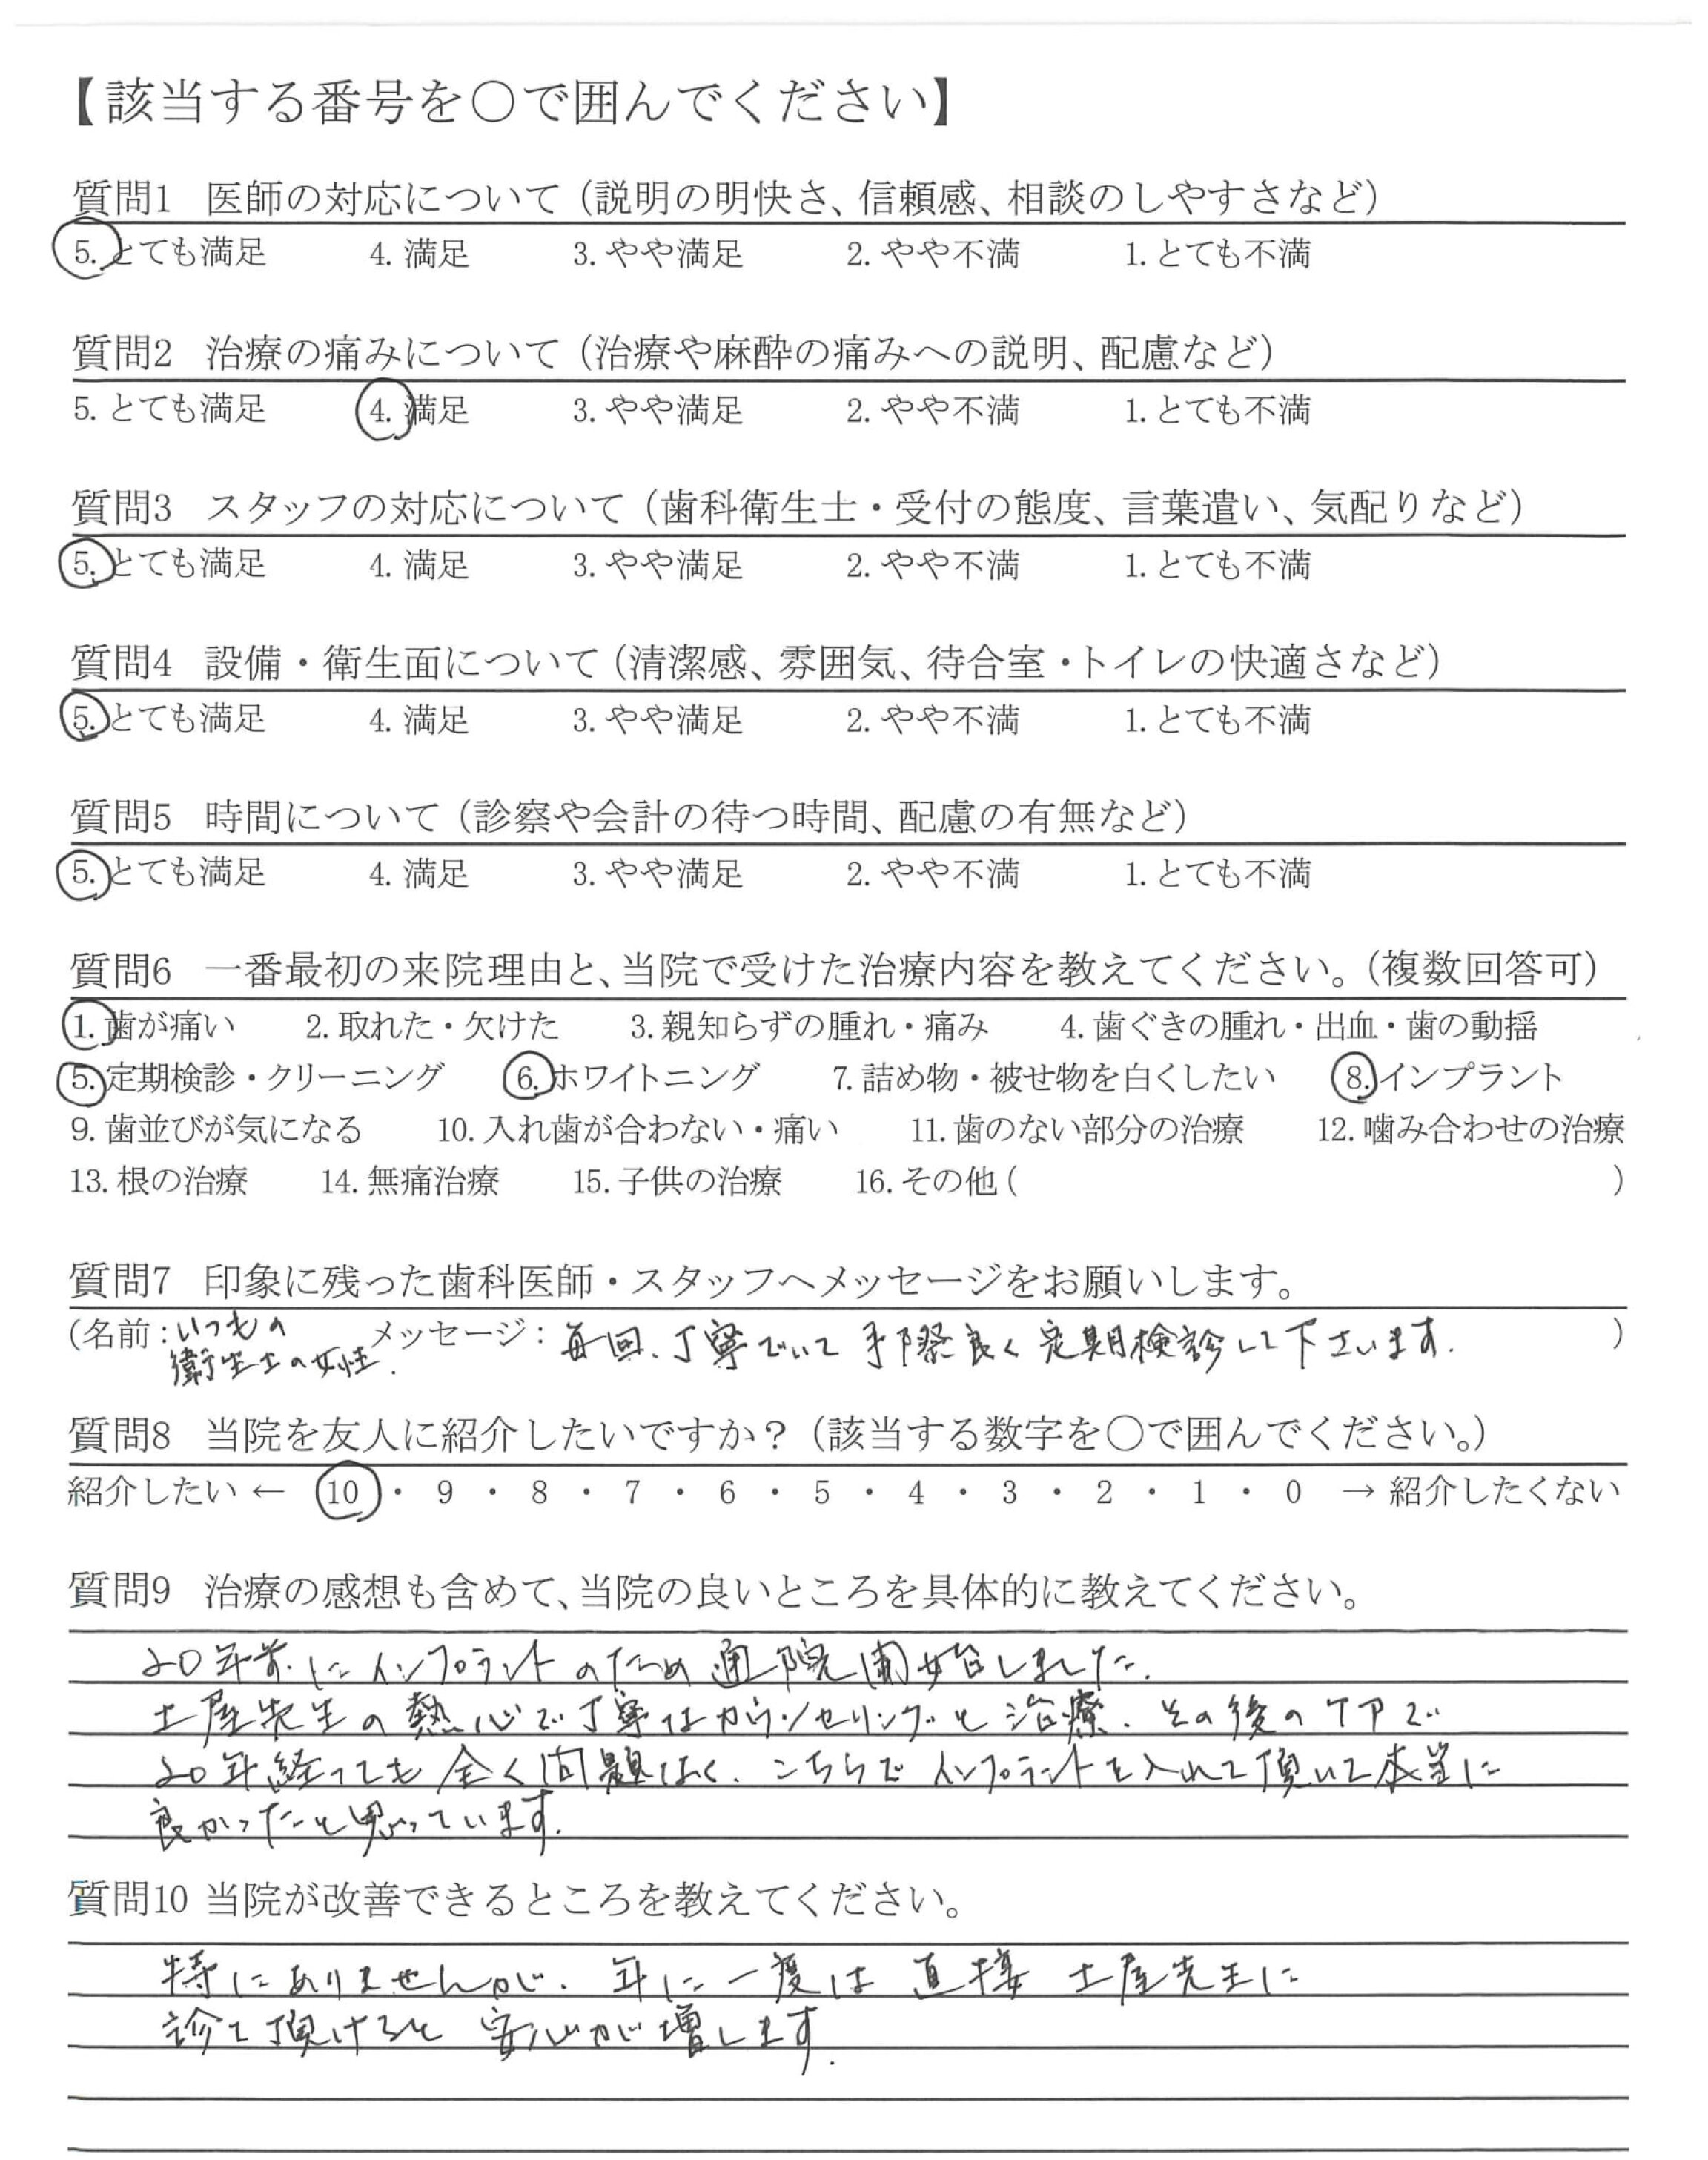 【該当する番号を○で囲んでください】
質問1 医師の対応について（説明の明快さ、信頼感、相談のしやすさなど）
5. とても満足 4. 満足 3. やや満足 2. やや不満 1. とても不満
質問2 治療の痛みについて（治療や麻酔の痛みへの説明、配慮など）
5. とても満足 4. 満足 3. やや満足 2. やや不満 1. とても不満
質問3 スタッフの対応について（歯科衛生士・受付の態度、言葉遣い、気配りなど）
5. とても満足 4. 満足 3. やや満足 2. やや不満 1. とても不満
質問4 設備・衛生面について（清潔感、雰囲気、待合室・トイレの快適さなど）
5. とても満足 4. 満足 3. やや満足 2. やや不満 1. とても不満
質問5 時間について（診察や会計の待つ時間、配慮の有無など）
5. とても満足 4. 満足 3. やや満足 2. やや不満 1. とても不満
質問6 一番最初の来院理由と、当院で受けた治療内容を教えてください。（複数回答可）
1. 歯が痛い 2. 取れた・欠けた 3. 親知らずの腫れ・痛み 4. 歯ぐきの腫れ・出血・歯の動揺
5. 定期検診・クリーニング 6. ホワイトニング 7. 詰め物・被せ物を白くしたい 8. インプラント
9. 歯並びが気になる 10. 入れ歯が合わない・痛い 11. 歯のない部分の治療 12. 噛み合わせの治療
13. 根の治療 14. 無痛治療 15. 子供の治療 16. その他 ( )
質問7 印象に残った歯科医師・スタッフへメッセージをお願いします。
(名前：いつもの メッセージ：毎回、丁寧でいて手際良く定期検診して下さいます. )
衛生士の女性.
質問8 当院を友人に紹介したいですか？（該当する数字を○で囲んでください。）
紹介したい ← 10 ・ 9 ・ 8 ・ 7 ・ 6 ・ 5 ・ 4 ・ 3 ・ 2 ・ 1 ・ 0 → 紹介したくない
質問9 治療の感想も含めて、当院の良いところを具体的に教えてください。
20年前にインプラントのため通院開始しました.
土屋先生の熱心で丁寧なカウンセリングと治療、その後のケアで
20年経っても全く問題なく、こちらでインプラントを入れて頂いて本当に
良かったと思っています.
質問10 当院が改善できるところを教えてください。
特にありませんが、年に一度は直接土屋先生に
診て頂けると安心が増します.